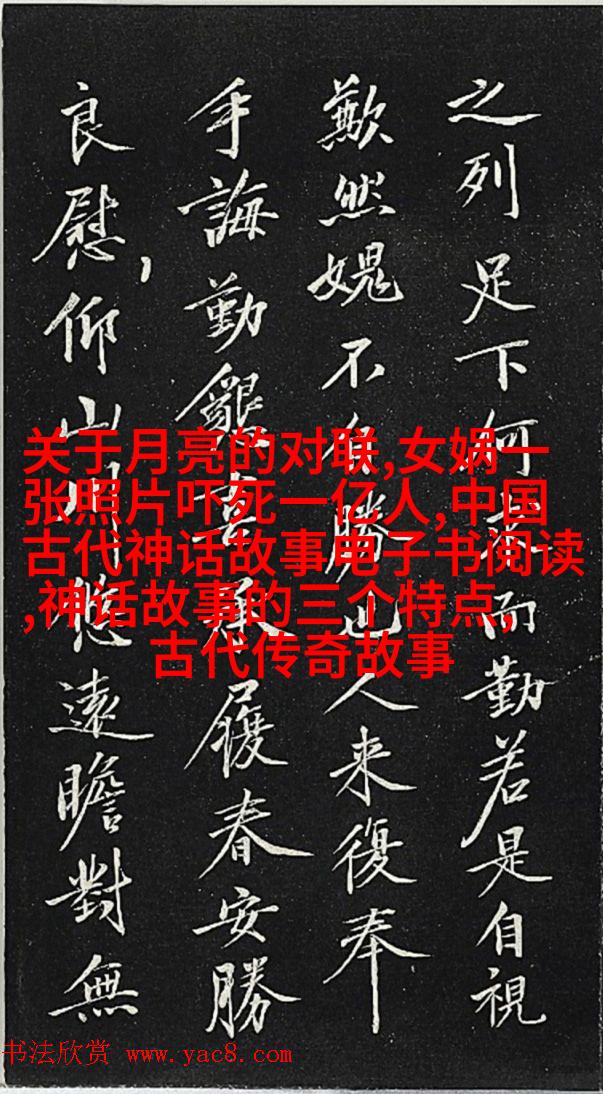 之列足下何而勤若是自視
然媿不勝也人来復奉
手誨勤履春安勝
良慰,仰山遠瞻對無
关于月亮的对联,女娲一
张照片吓死一亿人,中国
古代神话故事电子书阅读
,神话故事的三个特点,
古代传奇故事
书法欣赏 www.yac8.com